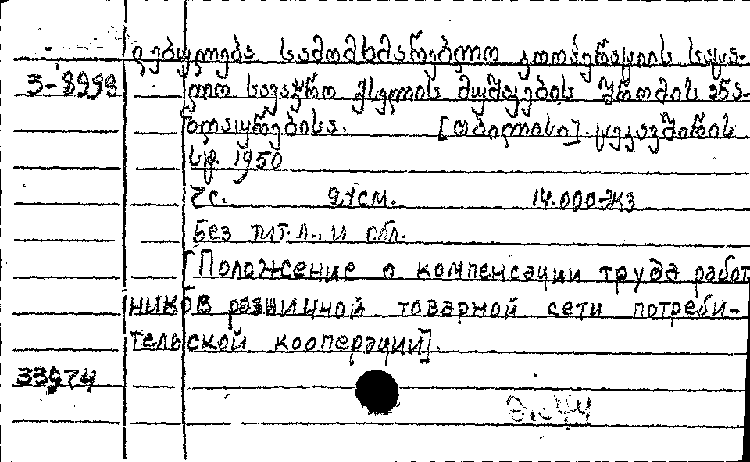 დებულება სამომხმარებლო კოოპერაციის საცა-
3-8998 ლო სავაჭრო ქსელის მუშაკების შრომის ანა-
ზღაურებისა. [თბილისი]. ცეკავშირის
სტ. 1950
2с. 21см. 14.000экз
Без тит. л. и обл.
[Положение о компенсации труда работ
ников розничной товарной сети потреби-
тельской кооперации].
33974